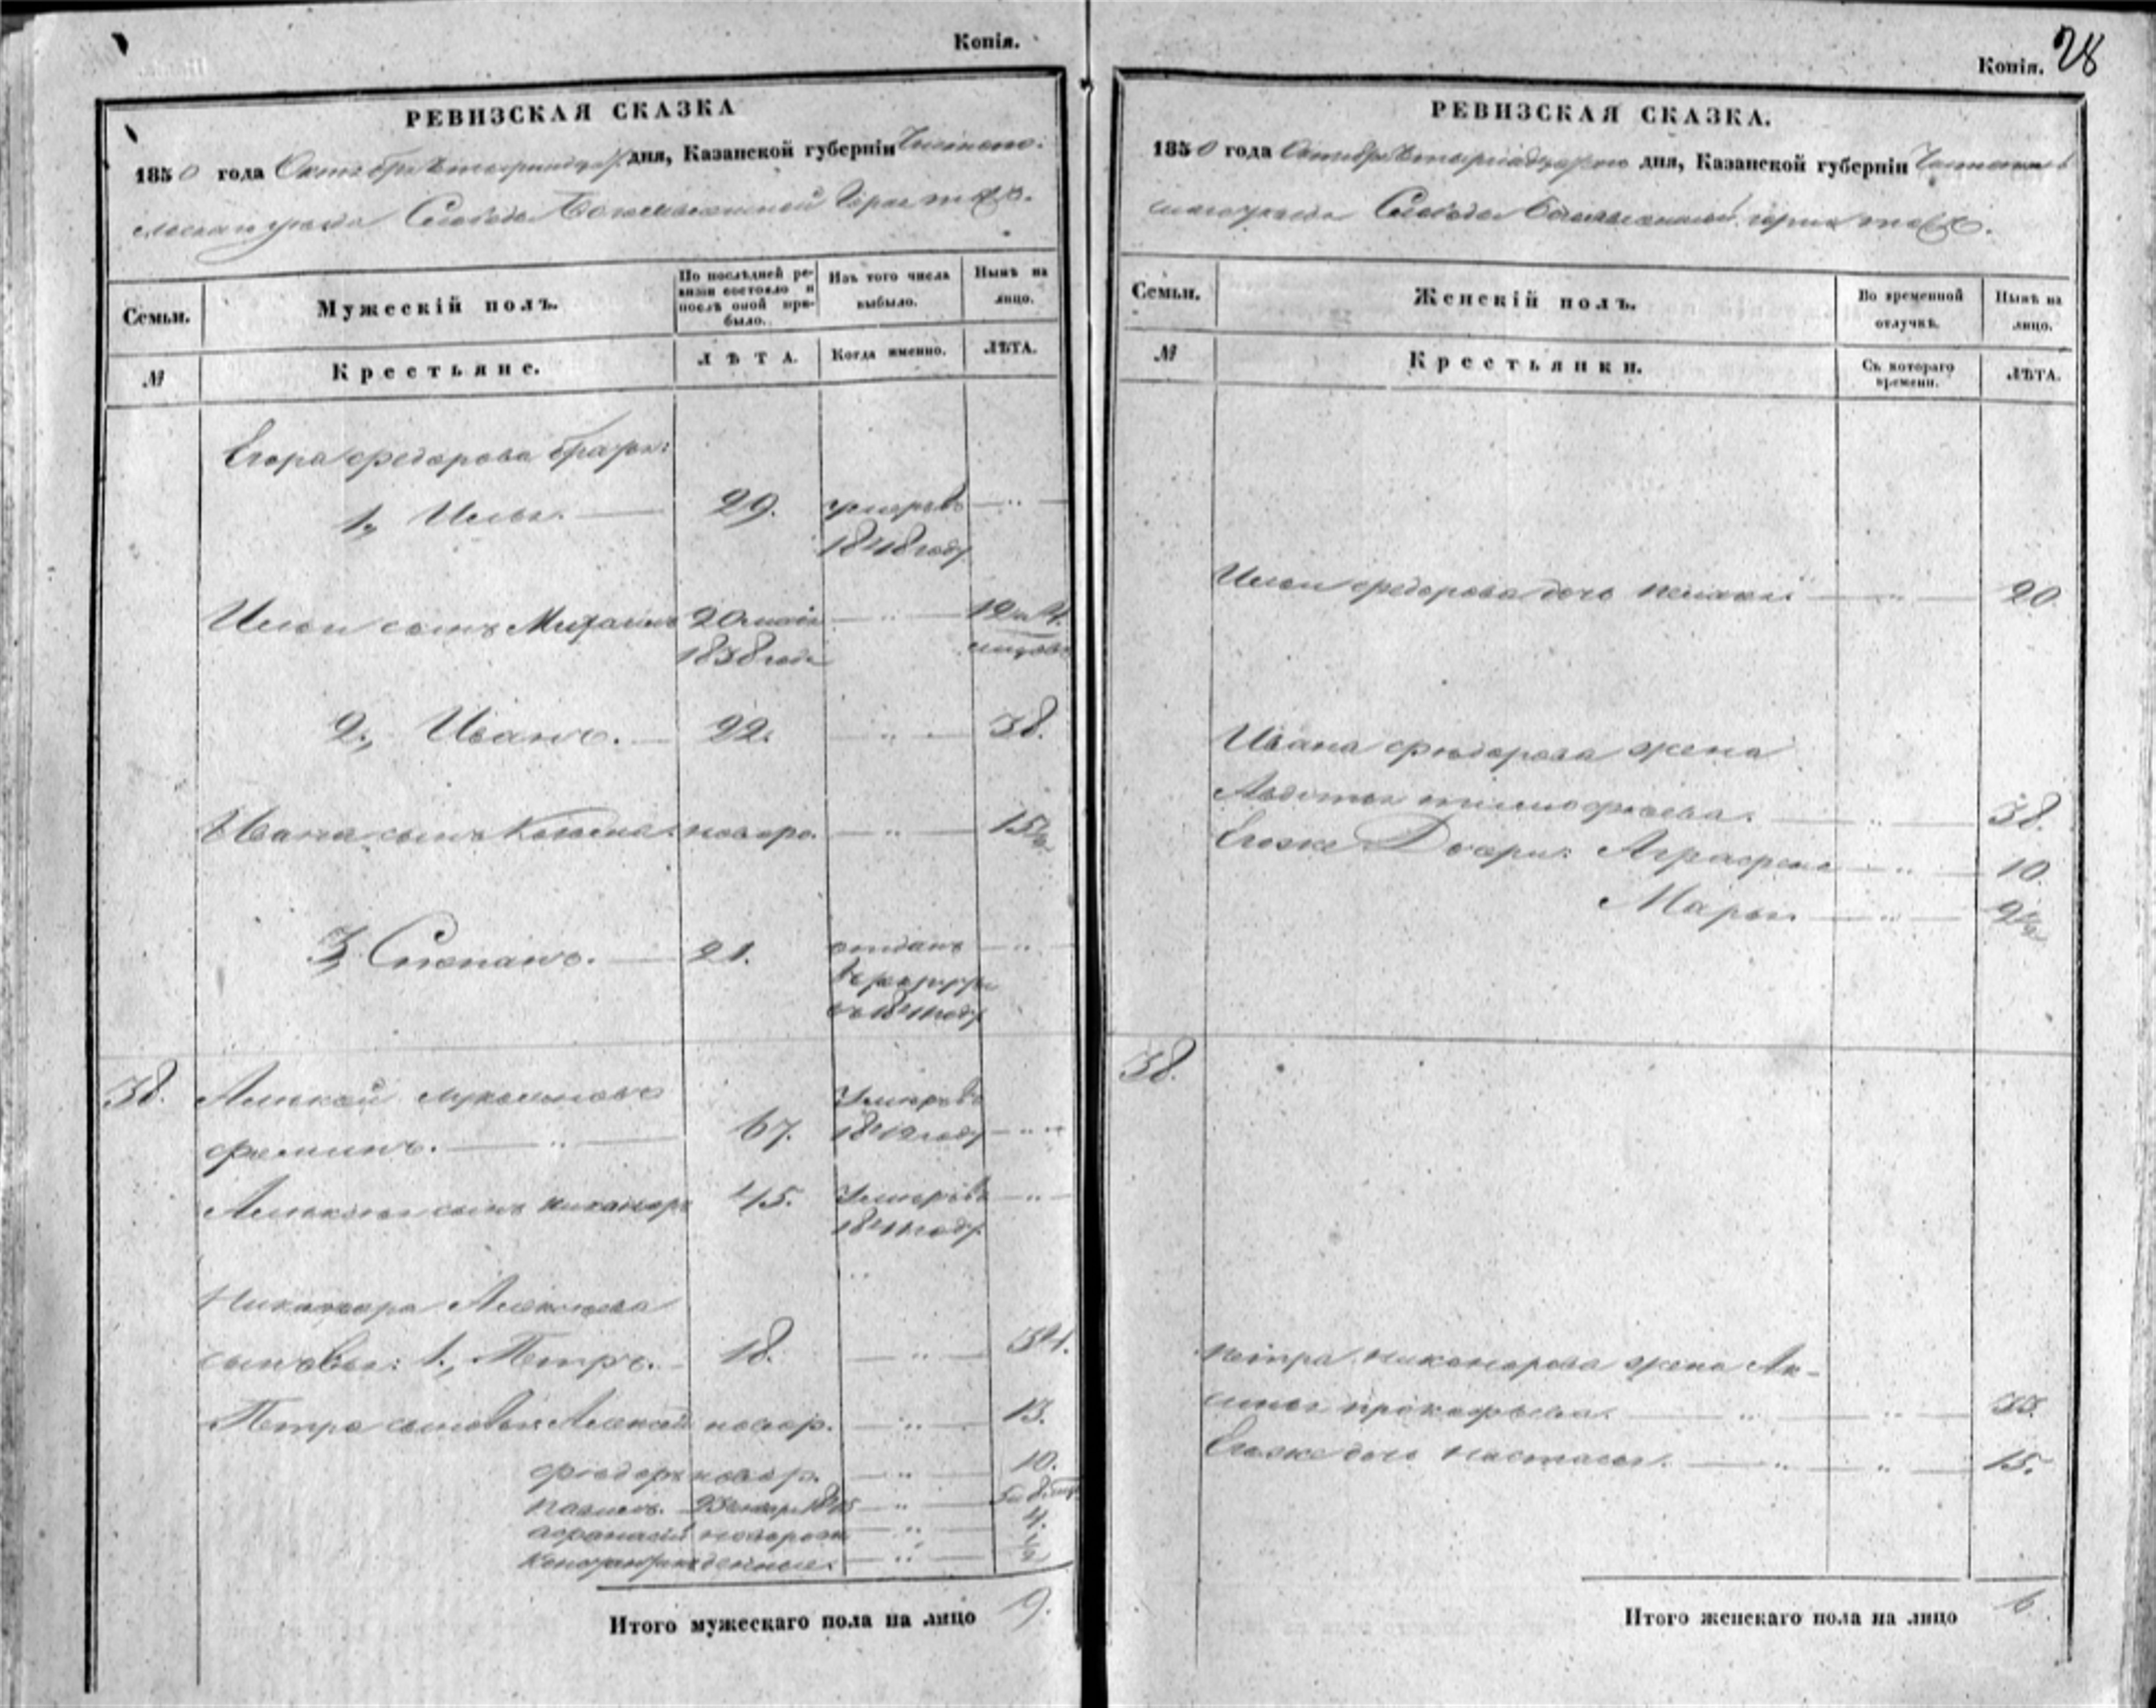 Копія.
РЕВИЗСКАЯ СКАЗКА
1850 года Октября дня, Казанской губерніи Чистопо-
льскаго уѣзда Слободы
Семьи.
Мужескій полъ.
По послѣдней ре-
визіи состояло и
послѣ оной при-
было.
Изъ того числа
выбыло.
Нынѣ на
лицо.
№
Крестьяне.
ЛѢТА.
Когда именно.
ЛѢТА.
Егора Федорова братья:
1., Илья. 29. умеръ въ
1848 году
Ильи сынъ Михаилъ 20 маія 12 и 4.
1838 года мѣсяцовъ
2., Иванъ. 22. 38.
Ивана сынъ новоро. 15½
3. Степанъ. 21. отданъ
въ рекруты
въ 1841 году
38. Алексѣй
Фоминъ. 67. Умеръ въ
году
Алексѣя сынъ Никаноръ 45. Умеръ въ
1841 году
Никанора Алексѣева
сыновья: 1., Петръ. 18. 34.
Петра сыновья: Алексѣй новор. 13.
Федоръ новор. 10.
Павелъ. января 1845 5 и 8
Афанасій новорож 4.
денные. ½
Итого мужескаго пола на лицо 9.
Копія. 28
РЕВИЗСКАЯ СКАЗКА.
1850 года Октября дня, Казанской губерніи Чистополь
скаго уѣзда Слободы
Семьи.
Женскій полъ.
Во временной
отлучкѣ.
Нынѣ на
лицо.
№
Крестьянки.
Съ котораго
времени.
ЛѢТА.
Ильи Федорова дочь Пелагея 20.
Ивана Федорова жена
Авдотья Тимофеева. 38.
Егоже Дочери: Аграфена 10.
Марья. 2½
38.
Петра Никанорова жена Ак-
синья Прокофьева. 33.
Егоже дочь Настасья. 15.
Итого женскаго пола на лицо 6.